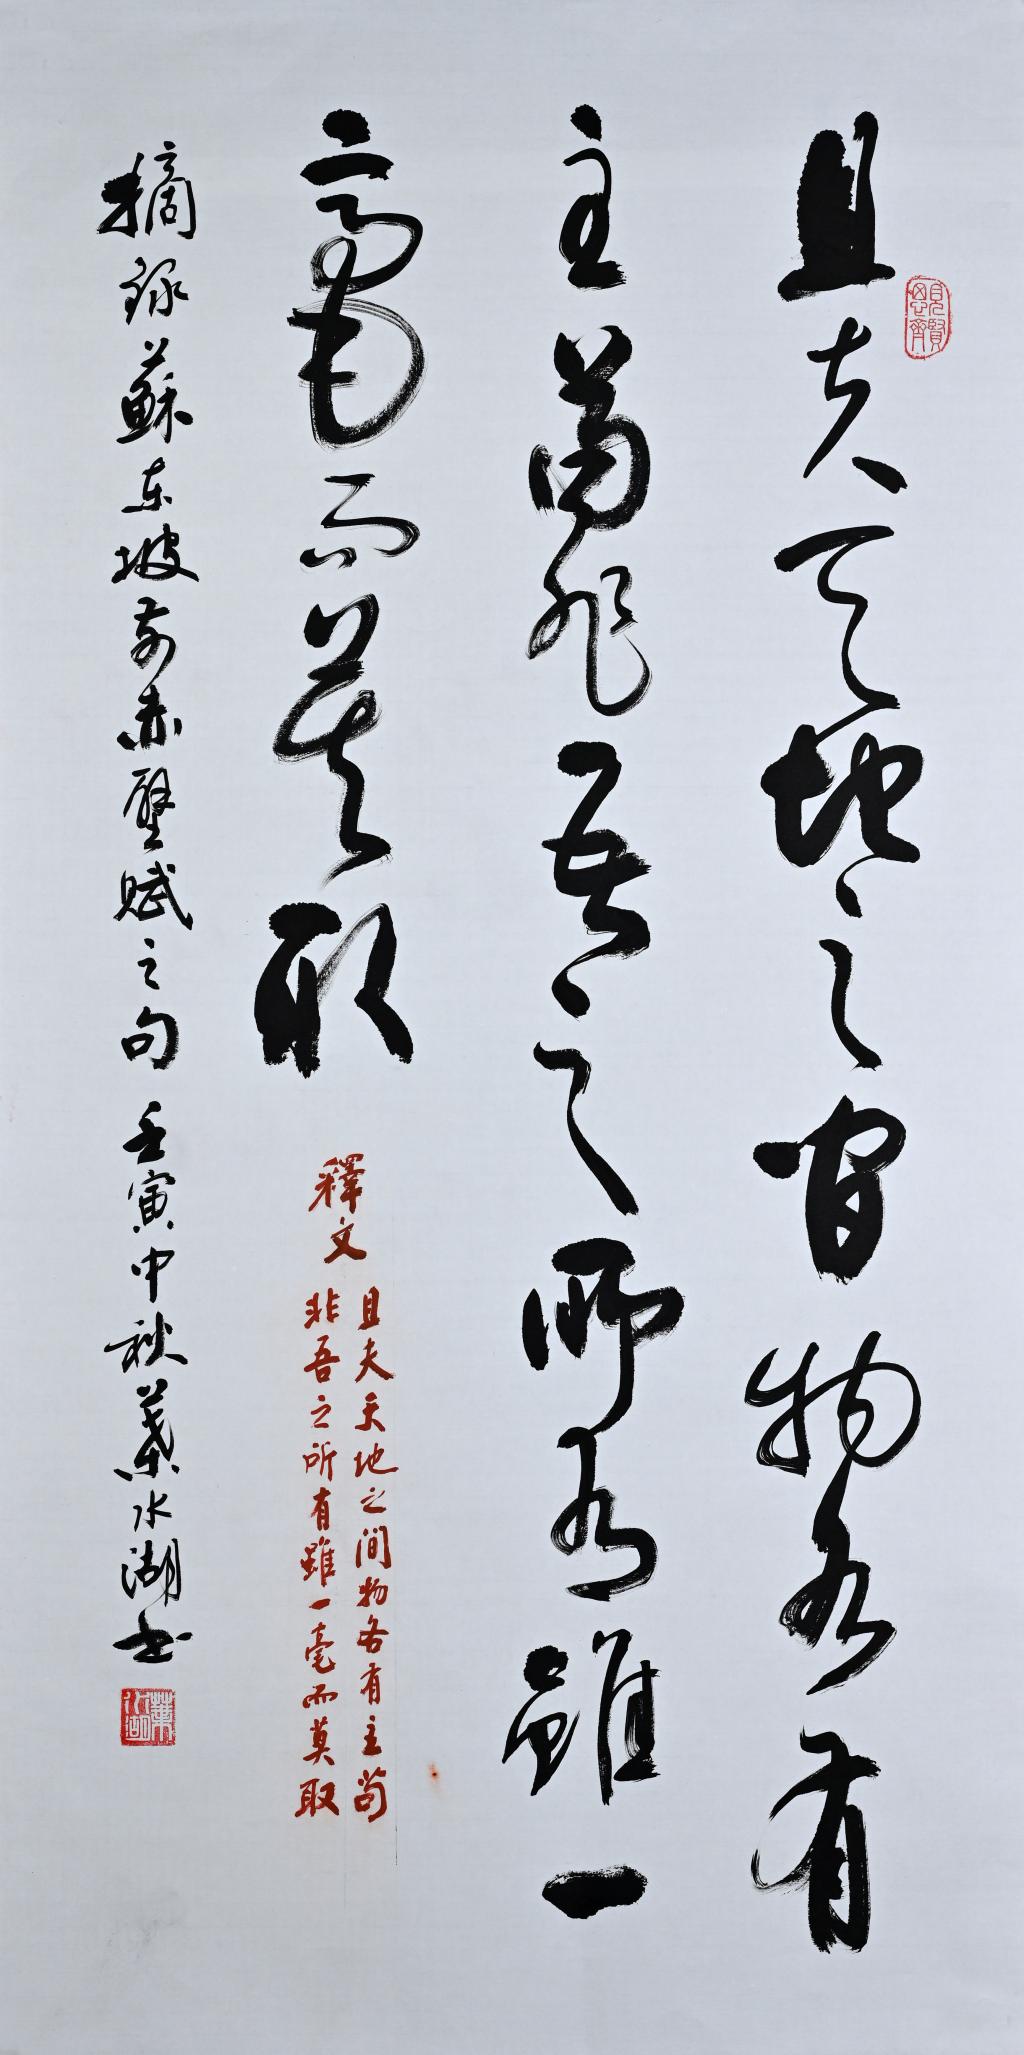 且夫天地之間物各有
主苟非吾之所有雖一
毫而莫取
釋文
且夫天地之间物各有主苟
非吾之所有雖一毫而莫取
摘錄蘇东坡前赤壁賦之句 壬寅中秋葉水湖书
見賢思齊
葉水湖